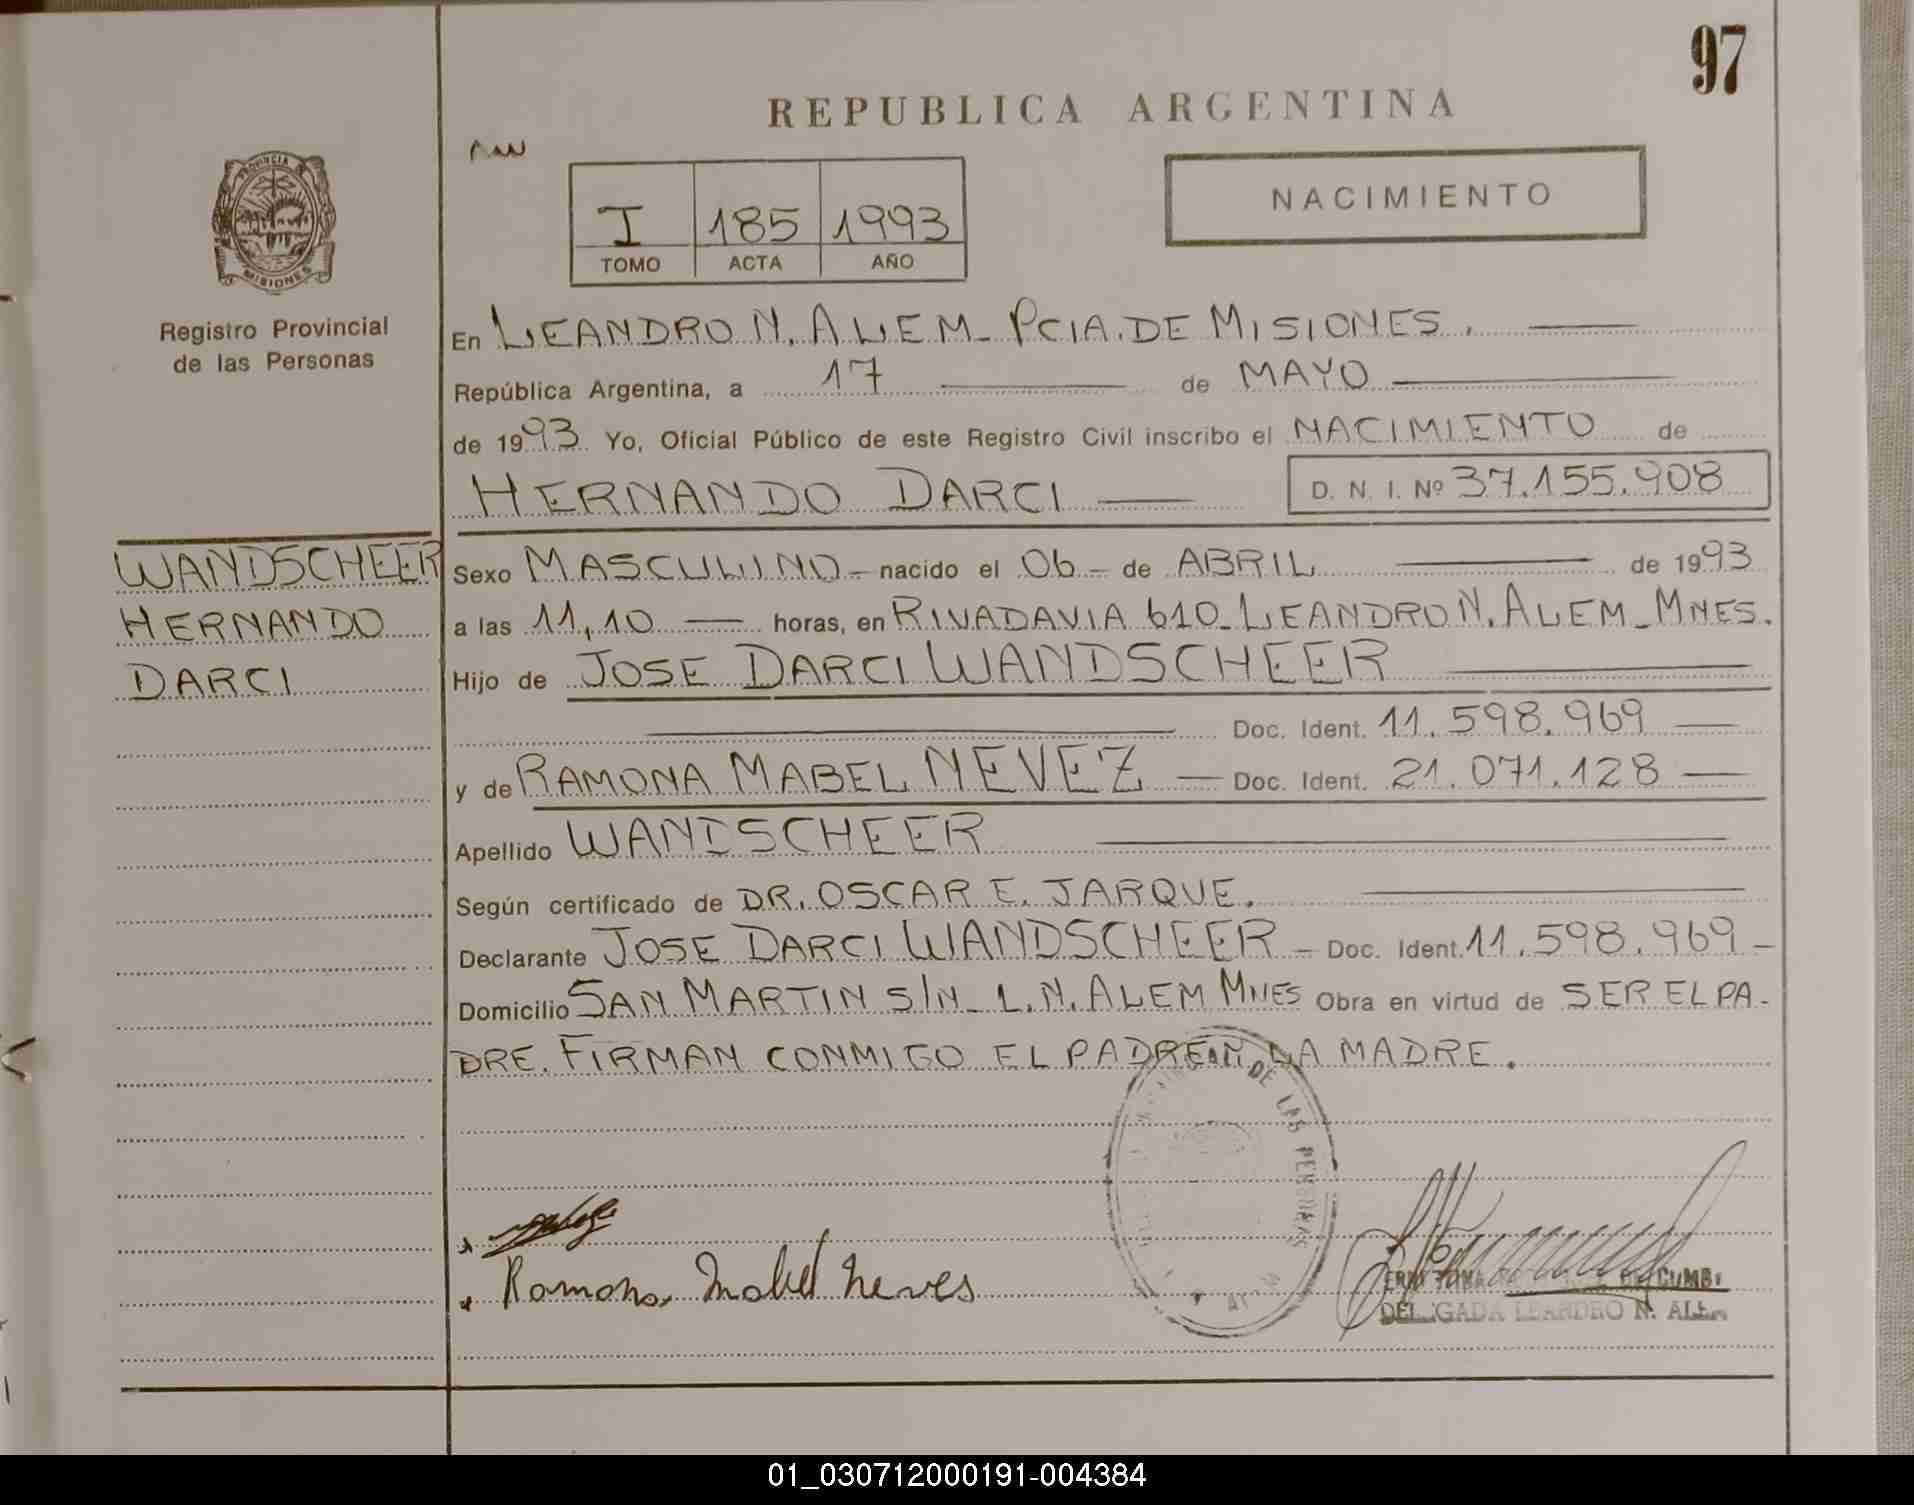 97
REPUBLICA ARGENTINA
PROVINCIA
MISIONES
I 185 1993
TOMO ACTA AÑO
NACIMIENTO
Registro Provincial
de las Personas
En LEANDRO N. ALEM_ PCIA. DE MISIONES.
República Argentina, a 17 de MAYO
de 1993. Yo, Oficial Público de este Registro Civil inscribo el NACIMIENTO de
HERNANDO DARCI D. N. I. Nº 37.155.908
WANDSCHEER
HERNANDO
DARCI
Sexo MASCULINO – nacido el 06 – de ABRIL de 1993
a las 11,10 — horas, en RIVADAVIA 610_ LEANDRO N. ALEM_ MNES.
Hijo de JOSE DARCI WANDSCHEER
Doc. Ident. 11.598.969 —
y de RAMONA MABEL NEVEZ — Doc. Ident. 21.071.128 —
Apellido WANDSCHEER
Según certificado de DR. OSCAR E. JARQUE.
Declarante JOSE DARCI WANDSCHEER – Doc. Ident. 11.598.969 –
Domicilio SAN MARTIN S/N_ L.N. ALEM MNES Obra en virtud de SER EL PA-
DRE. FIRMAN CONMIGO EL PADRE Y LA MADRE.
DE LAS PERSONAS
Ramona Mabel Neves
LEANDRO N. ALEM
01_030712000191-004384